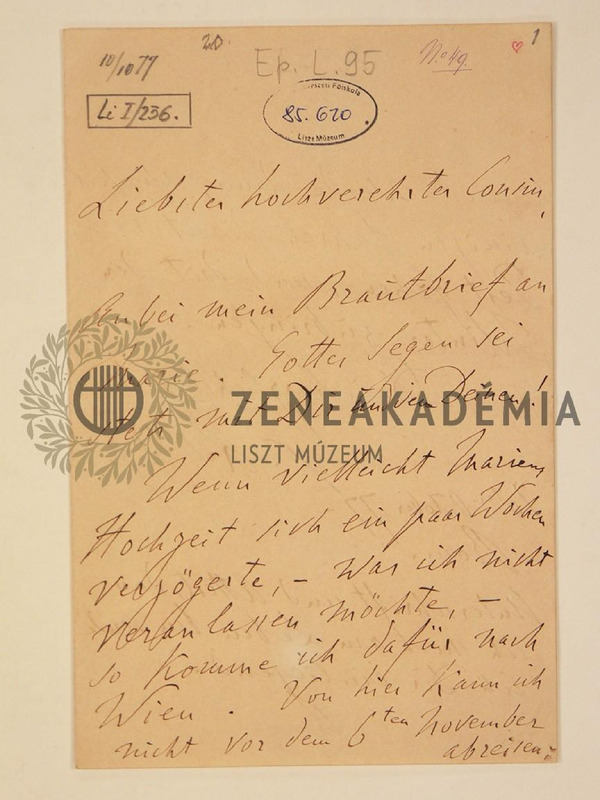 10/10 77
20.
Ep. L. 95
No 49.
1
Li I/236.
85.620
Liszt Múzeum
Liebster hochverehrter Cousin,
Anbei mein Brautbrief an
Marie. Gottes Segen sei
stets mit Dir und den Deinen!
ZENEAKADÉMIA
LISZT MÚZEUM
Wenn vielleicht Mariens
Hochzeit sich ein paar Wochen
verzögerte, – was ich nicht
veranlassen möchte, –
so komme ich dafür nach
Wien. Von hier kann ich
nicht vor dem 6ten November
abreisen: